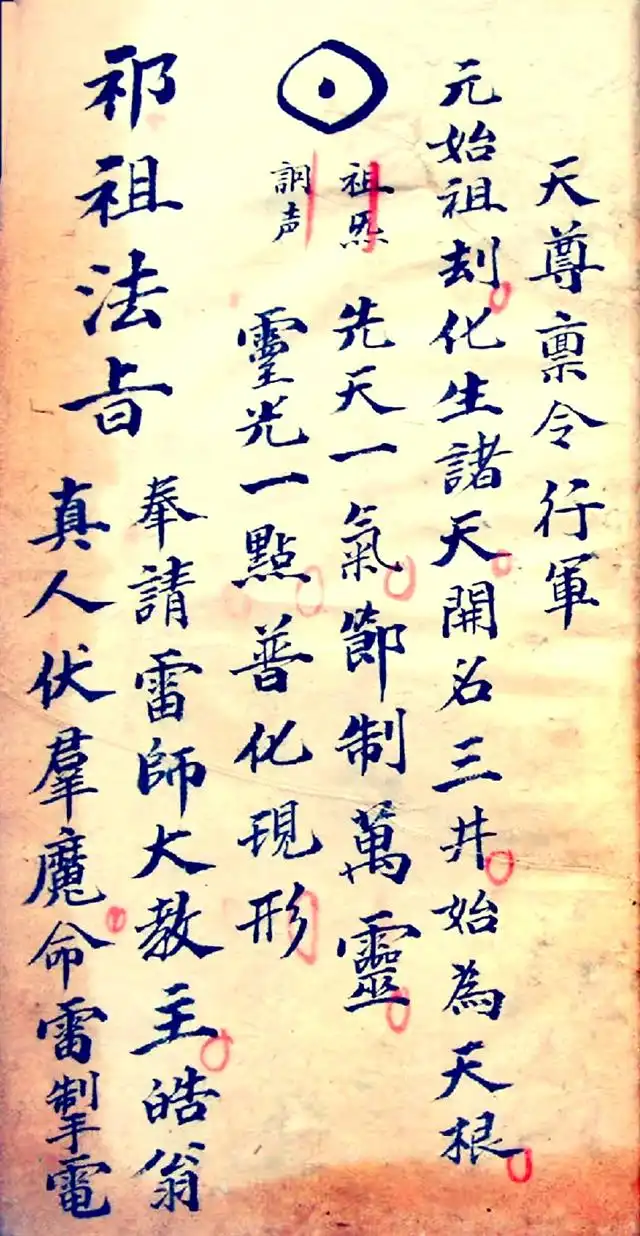 天尊禀令行軍
元始祖刦化生諸天開名三井始為天根
祖炁
声
先天一氣節制萬靈
靈光一點普化現形
祁祖法旨
奉請雷師大教主皓翁
真人伏羣魔命雷掣電